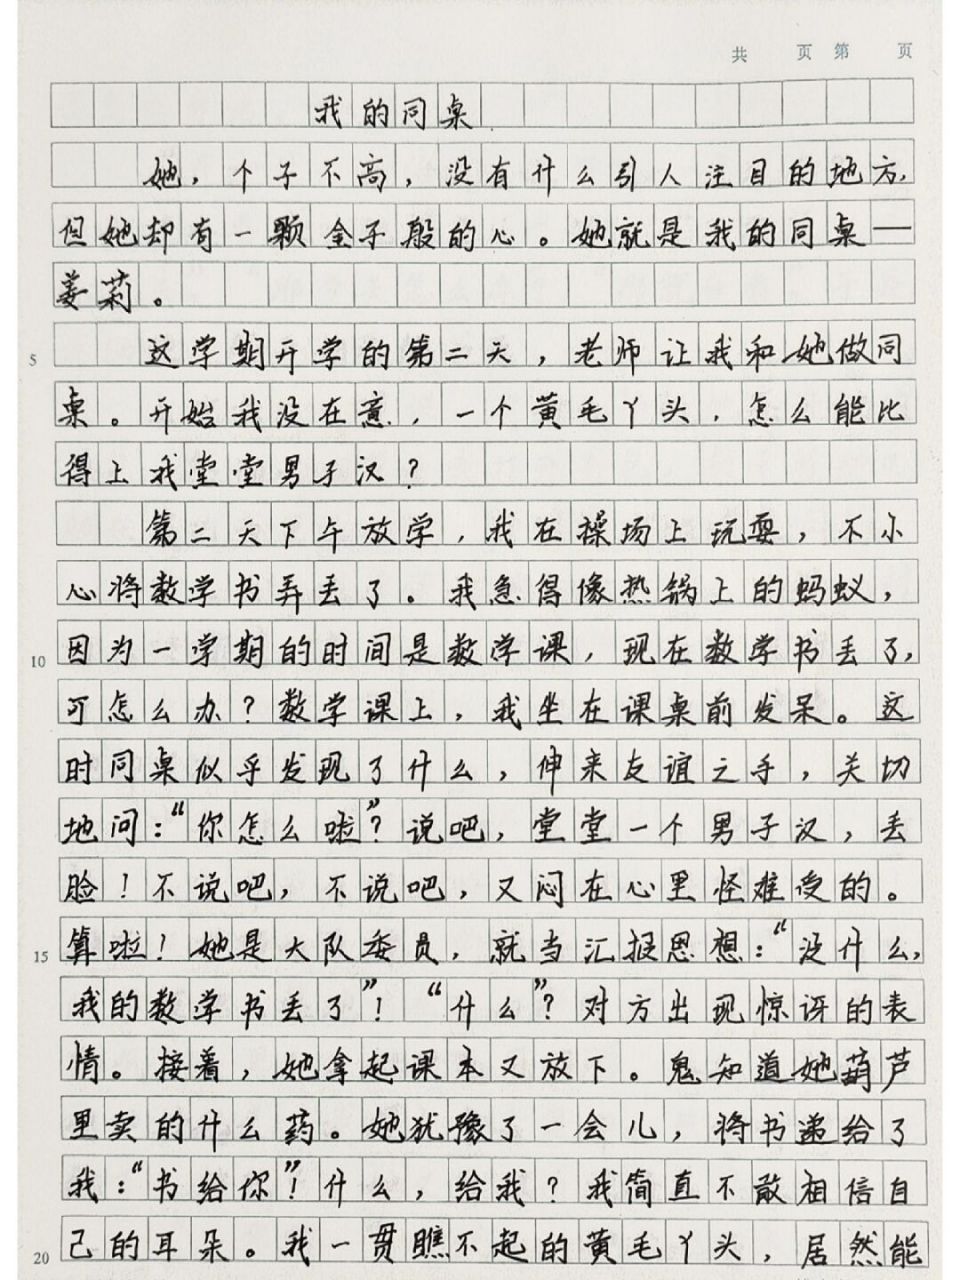 共 页 第 页
我的同桌
她，个子不高，没有什么引人注目的地方，
但她却有一颗金子般的心。她就是我的同桌——
姜莉。
5 这学期开学的第二天，老师让我和她做同
桌。开始我没在意，一个黄毛丫头，怎么能比
得上我堂堂男子汉？
第二天下午放学，我在操场上玩耍，不小
心将数学书弄丢了。我急得像热锅上的蚂蚁，
10 因为一学期的时间是数学课，现在数学书丢了，
可怎么办？数学课上，我坐在课桌前发呆。这
时同桌似乎发现了什么，伸来友谊之手，关切
地问：“你怎么啦”？说吧，堂堂一个男子汉，丢
脸！不说吧，不说吧，又闷在心里怪难受的。
15 算啦！她是大队委员，就当汇报思想：“没什么，
我的数学书丢了”！“什么”？对方出现惊讶的表
情。接着，她拿起课本又放下。鬼知道她葫芦
里卖的什么药。她犹豫了一会儿，将书递给了
我：“书给你”！什么，给我？我简直不敢相信自
20 己的耳朵。我一贯瞧不起的黄毛丫头，居然能